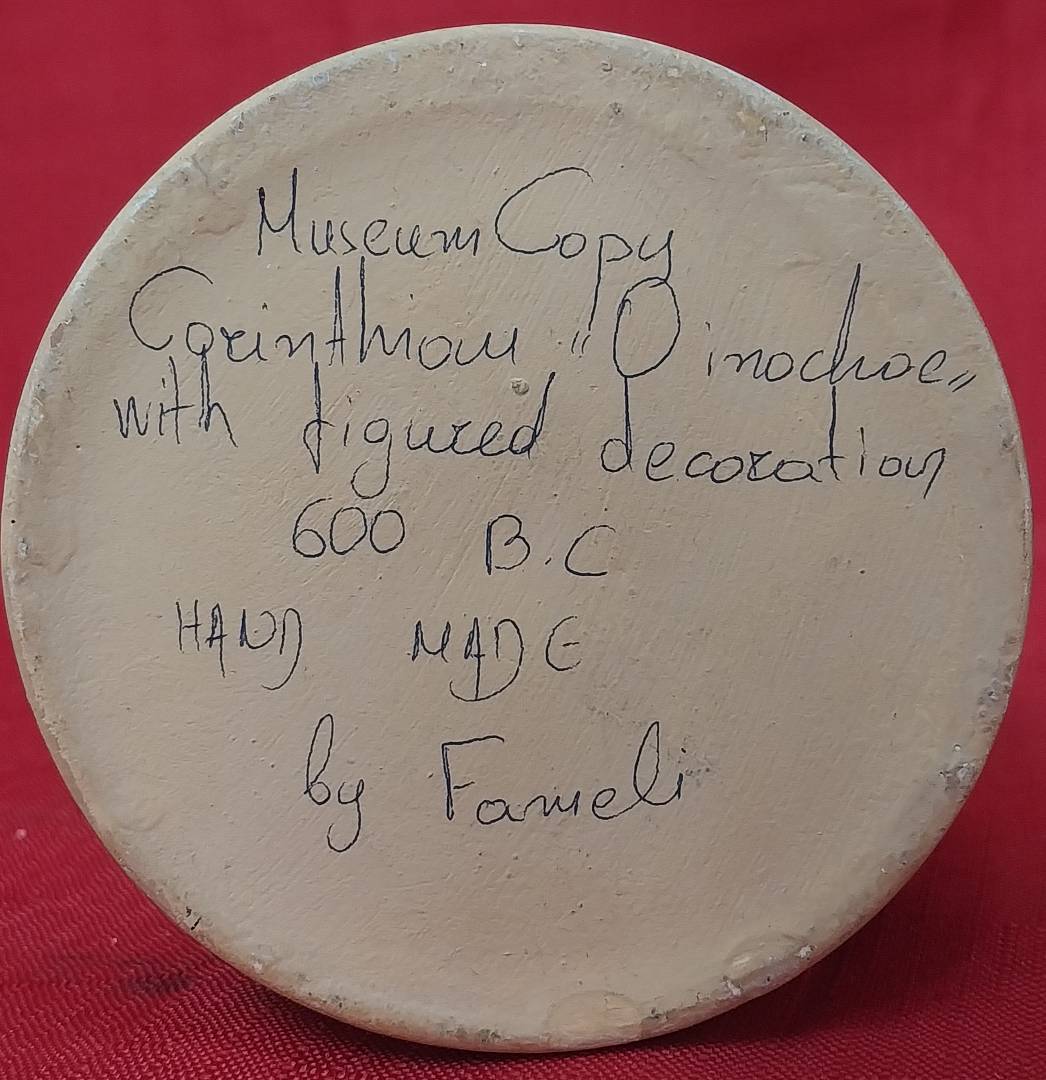 Museum Copy
Corinthian "Oinochoe"
with figured decoration
600 B.C
HAND MADE
by Fameli